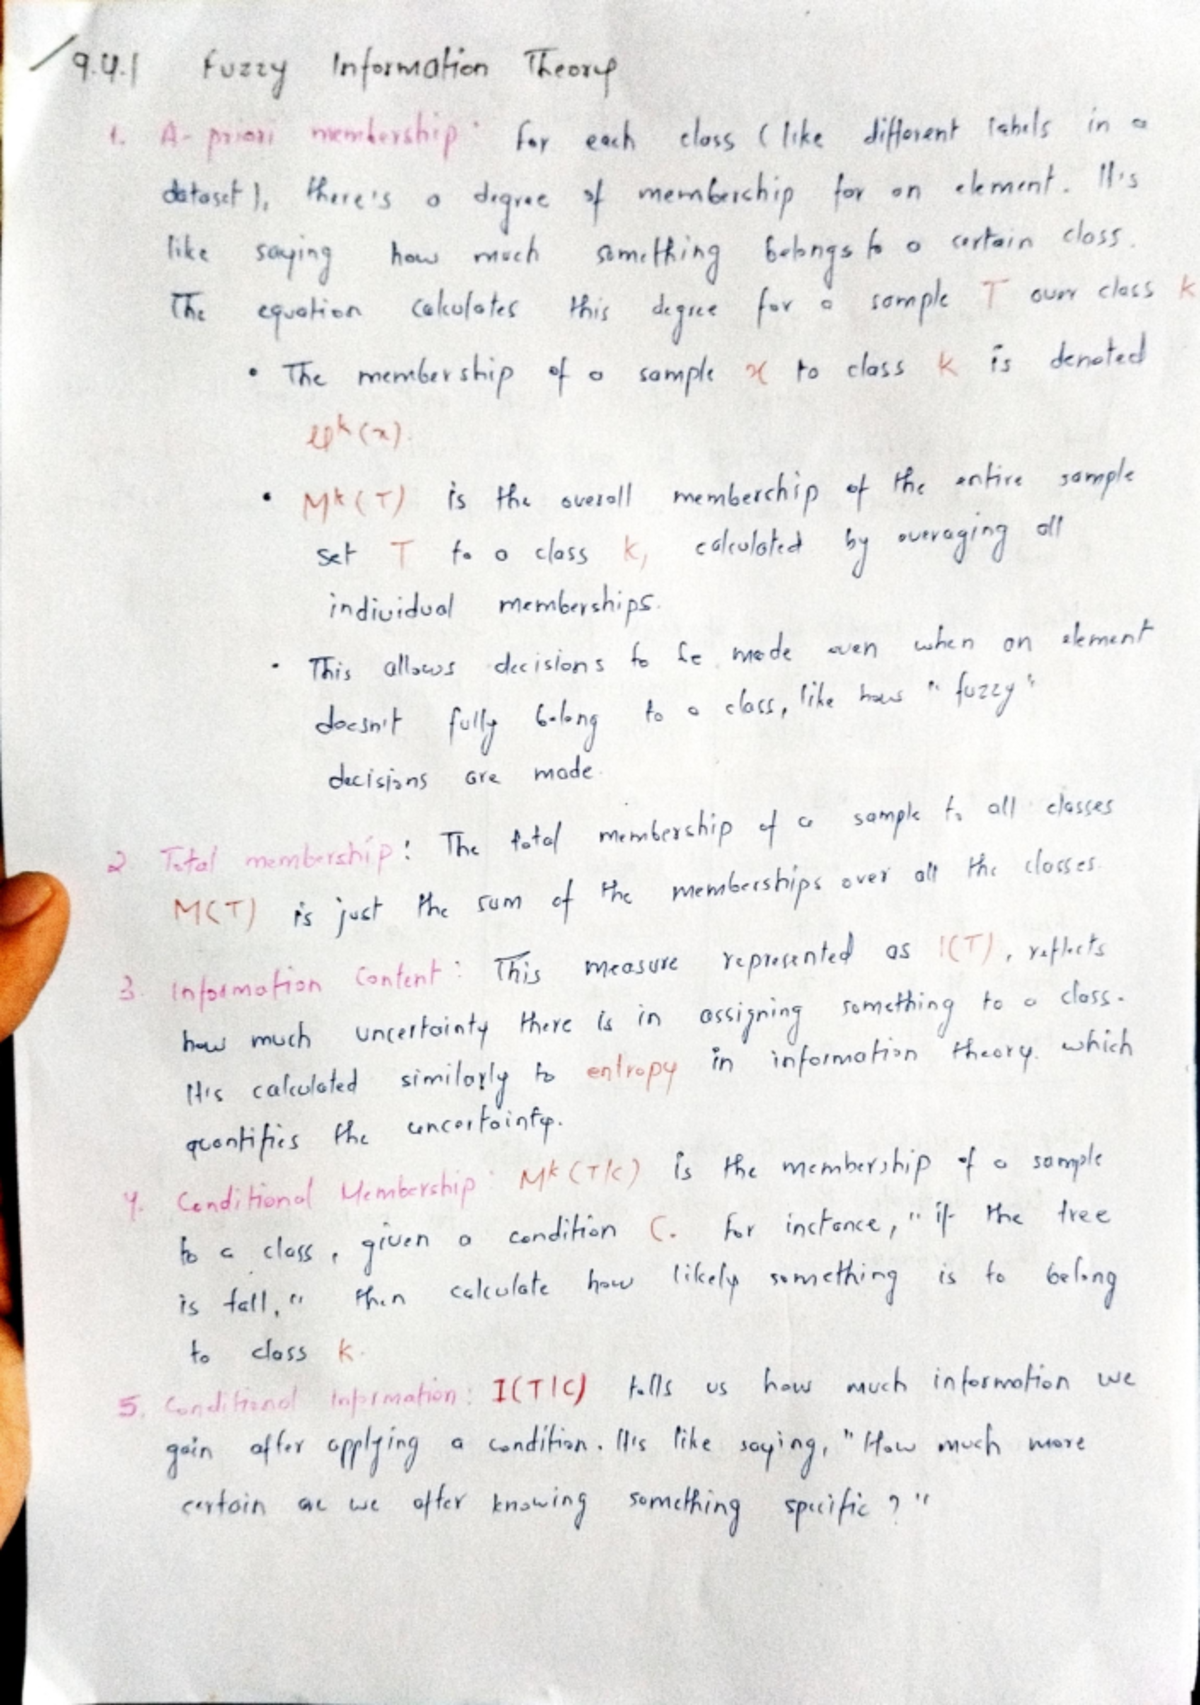 9.4.1 Fuzzy Information Theory
1. A-priori membership: For each class (like different labels in a
dataset), there's a degree of membership for an element. It's
like saying how much something belongs to a certain class.
The equation calculates this degree for a sample T over class k
• The membership of a sample x to class k is denoted
μᵏ(x).
• Mᵏ(T) is the overall membership of the entire sample
set T to a class k, calculated by averaging all
individual memberships.
• This allows decisions to be made even when an element
doesn't fully belong to a class, like how "fuzzy"
decisions are made.
2 Total membership: The total membership of a sample to all classes
M(T) is just the sum of the memberships over all the classes.
3. Information Content: This measure represented as I(T), reflects
how much uncertainty there is in assigning something to a class.
It's calculated similarly to entropy in information theory. which
quantifies the uncertainty.
4. Conditional Membership: Mᵏ(T|C) is the membership of a sample
to a class, given a condition C. For instance, "if the tree
is tall," then calculate how likely something is to belong
to class k.
5. Conditional Information: I(T|C) tells us how much information we
gain after applying a condition. It's like saying, "How much more
certain are we after knowing something specific?"